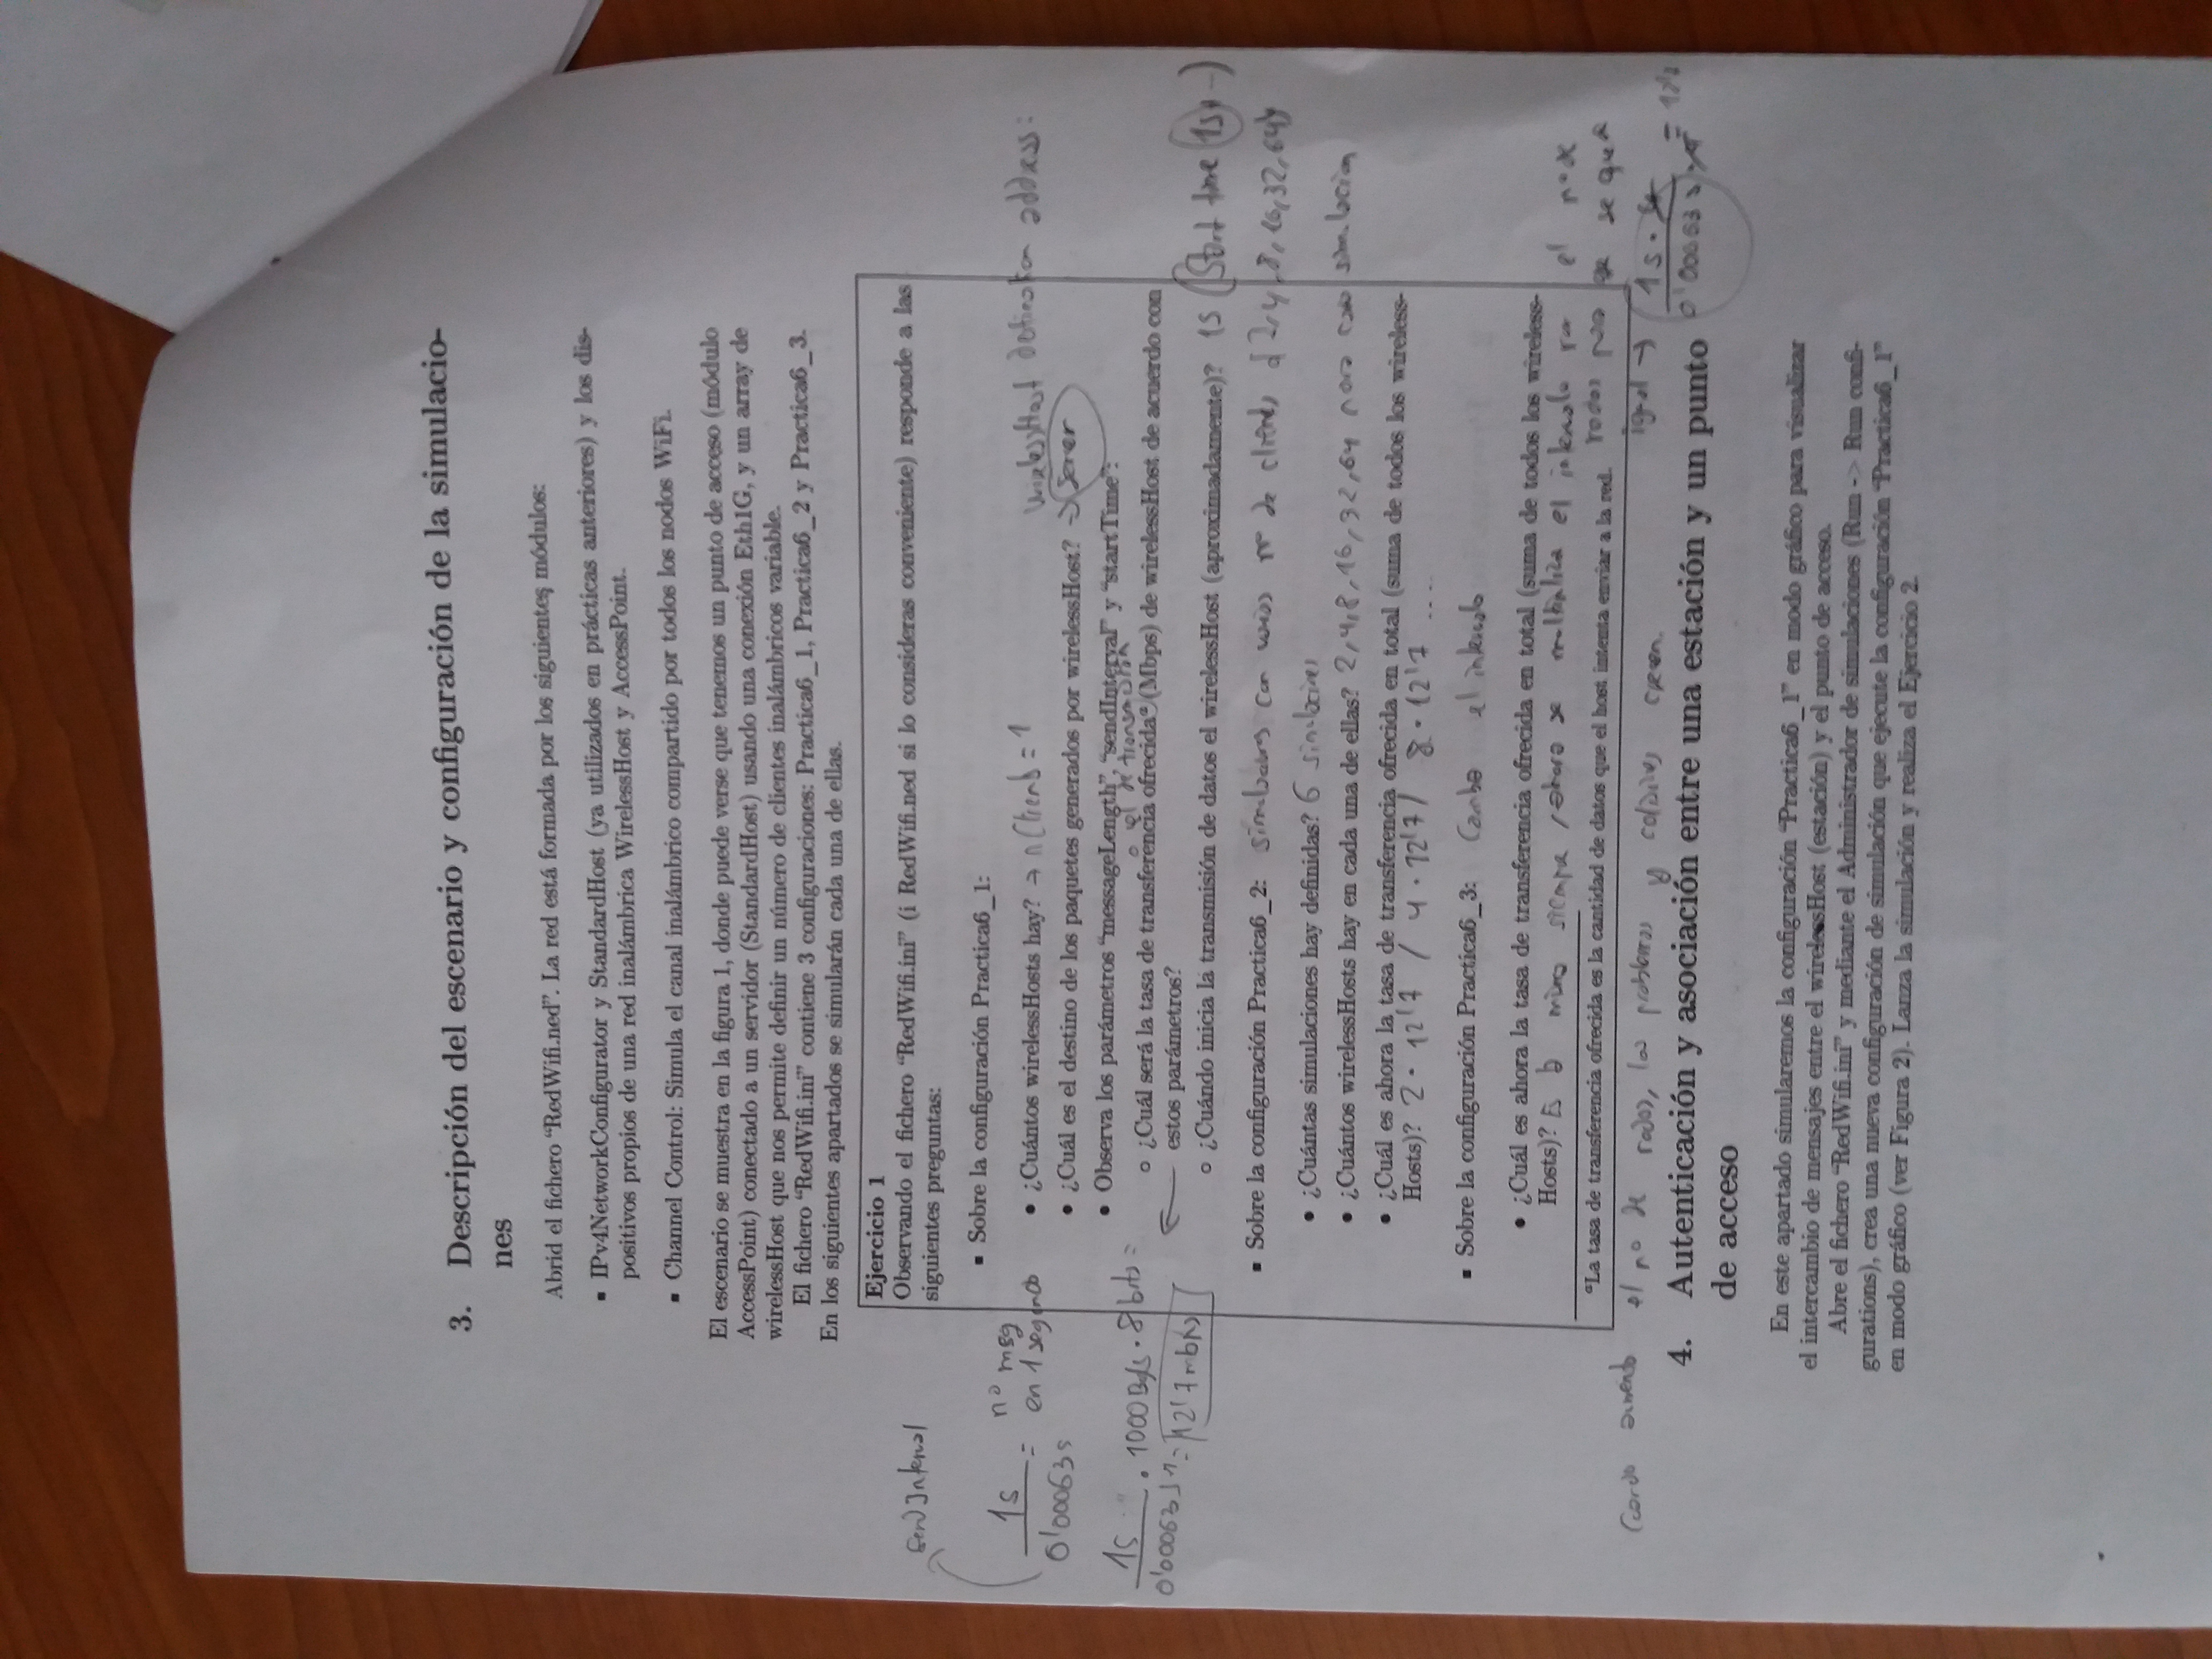 3. Descripción del escenario y configuración de la simulacio-
nes
Abrid el fichero “RedWifi.ned”. La red está formada por los siguientes módulos:
▪ IPv4NetworkConfigurator y StandardHost (ya utilizados en prácticas anteriores) y los dis-
positivos propios de una red inalámbrica WirelessHost y AccessPoint.
▪ Channel Control: Simula el canal inalámbrico compartido por todos los nodos WiFi.
El escenario se muestra en la figura 1, donde puede verse que tenemos un punto de acceso (módulo
AccessPoint) conectado a un servidor (StandardHost) usando una conexión Eth1G, y un array de
wirelessHost que nos permite definir un número de clientes inalámbricos variable.
El fichero “RedWifi.ini” contiene 3 configuraciones: Practica6_1, Practica6_2 y Practica6_3.
En los siguientes apartados se simularán cada una de ellas.
Ejercicio 1
Observando el fichero “RedWifi.ini” (i RedWifi.ned si lo consideras conveniente) responde a las
siguientes preguntas:
sendInterval
▪ Sobre la configuración Practica6_1:
1s / 0'00063s = nº msg
en 1 segundo
• ¿Cuántos wirelessHosts hay? → nClients = 1
wirelessHost destination address:
• ¿Cuál es el destino de los paquetes generados por wirelessHost? → Server
• Observa los parámetros “messageLength”, “sendInterval” y “startTime”:
o vel de transmisión
○ ¿Cuál será la tasa de transferencia ofrecidaª (Mbps) de wirelessHost de acuerdo con
estos parámetros?
1s / 0'00063 · 1000 Bytes · 8 bits =
= 12'7 mbits
○ ¿Cuándo inicia la transmisión de datos el wirelessHost (aproximadamente)? 1s (Start time (1s,
▪ Sobre la configuración Practica6_2: simulaciones con varios nº de clientes {2,4,8,16,32,64}
• ¿Cuántas simulaciones hay definidas? 6 simulaciones
• ¿Cuántos wirelessHosts hay en cada una de ellas? 2,4,8,16,32,64 para cada simulacion
• ¿Cuál es ahora la tasa de transferencia ofrecida en total (suma de todos los wireless-
Hosts)? 2 · 12'7 / 4 · 12'7 / 8 · 12'7 ....
▪ Sobre la configuración Practica6_3: Cambia el intervalo
• ¿Cuál es ahora la tasa de transferencia ofrecida en total (suma de todos los wireless-
Hosts)? Es la misma siempre, ahora se multiplica el intervalo por el nº de
ªLa tasa de transferencia ofrecida es la cantidad de datos que el host intenta enviar a la red.
nodos para que se quede
igual → 1s / 0'00063 s
Cuando aumenta el nº de nodos, los problemas y colisiones crecen.
4. Autenticación y asociación entre una estación y un punto
de acceso
En este apartado simularemos la configuración “Practica6_1” en modo gráfico para visualizar
el intercambio de mensajes entre el wirelessHost (estación) y el punto de acceso.
Abre el fichero “RedWifi.ini” y mediante el Administrador de simulaciones (Run -> Run confi-
gurations), crea una nueva configuración de simulación que ejecute la configuración “Practica6_1”
en modo gráfico (ver Figura 2). Lanza la simulación y realiza el Ejercicio 2.